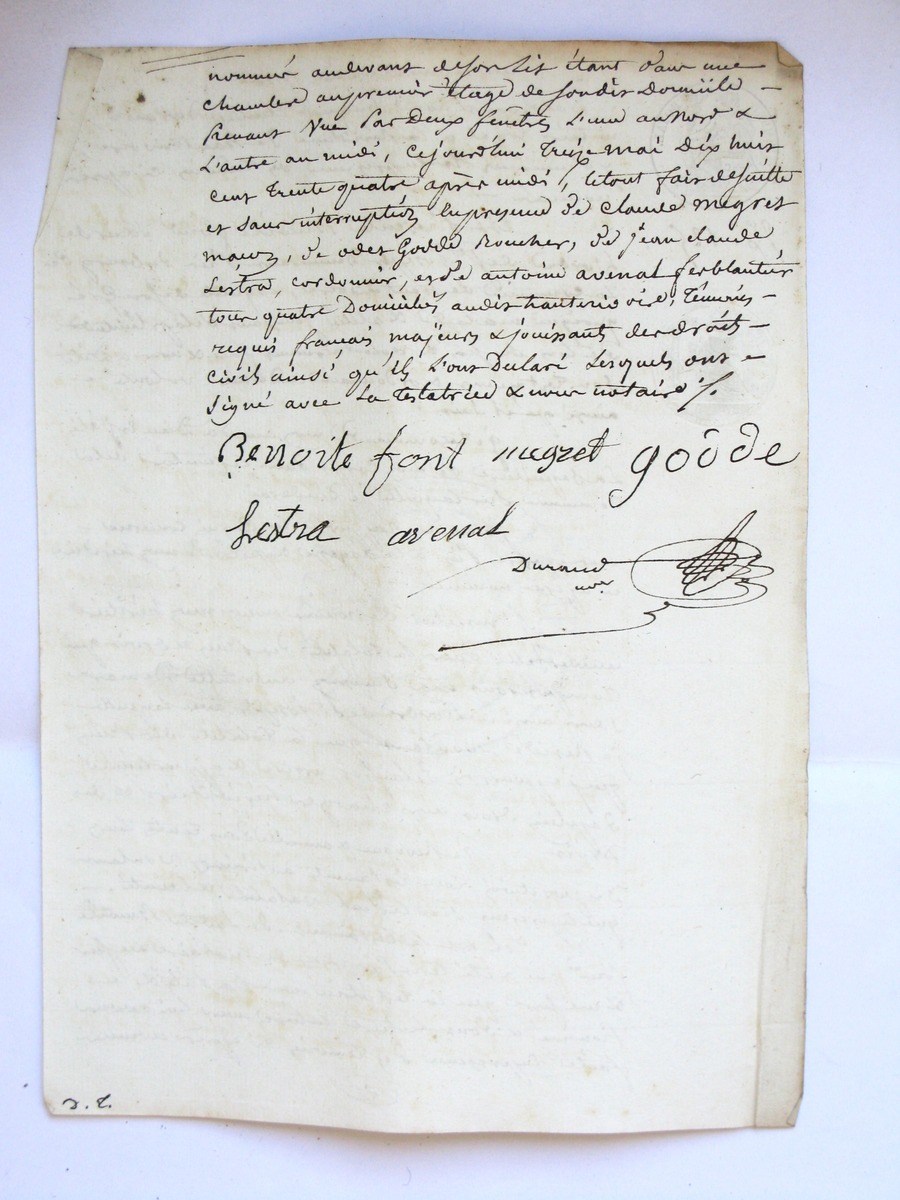 nommé audevant de son lit étant dans une
chambre au premier étage de sondit Domicile –
Prenant Vue Par deux fenêtres L'une au Nord &
L'autre au midi, cejourd'hui Treize mai Dix huit
cent trente quatre après midi /, le tout fait de suitte
et sans interruption En presence de Claude megret
macon, de odet Godde Boucher, de jean claude
Léstra, cordonnier, et de antoine avenat ferblantier
tous quatre Domiciliés audit hauterivoire, Témoins –
requis français majeurs & jouissant des droits –
civils ainsi qu'ils L'ont Déclaré Lesquels ont –
signé avec La Testatrice & nous notaire /.
Benoite font megret godde
Lestra avenat
Durand
nre
D. L.